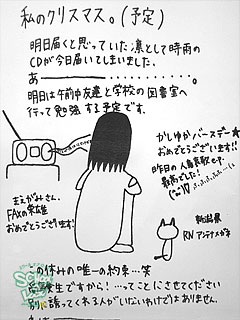 私のクリスマス。(予定)
明日届くと思っていた凛として時雨の
CDが今日届いてしまいました。
あー・・・・・・・・・・・・・・・。
明日は午前中友達と学校の図書室へ
行って勉強する予定です。
かしゆかバースデー
おめでとうございます!!
昨日の人
最高でした!
まえがみさん、
FAXの英雄
おめでとうございます!
新潟県
RN アンテナガネ
この休みの唯一の約束…笑
受験生ですから!…ってことにさせてください
別に誘ってくれる人がいないわけではありません。